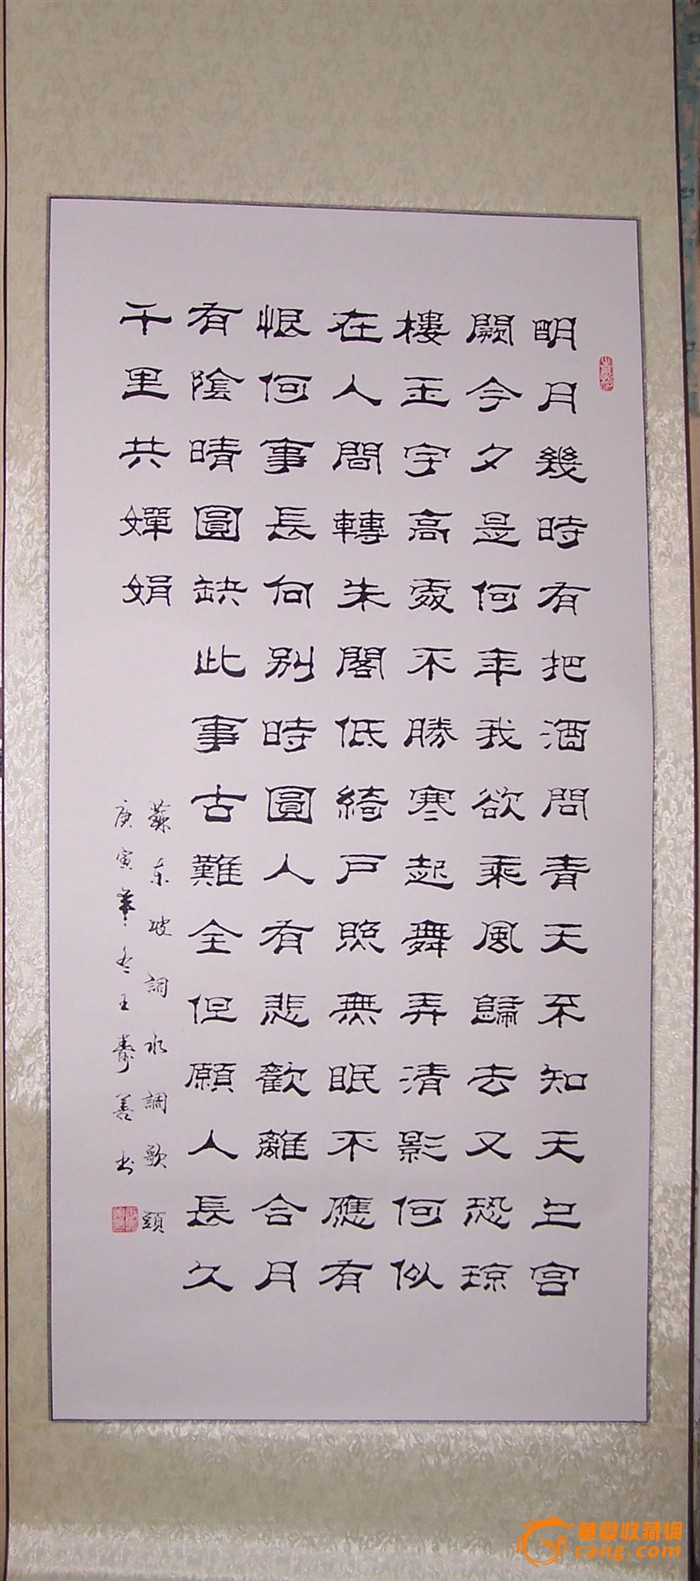 眀月幾時有把酒問青天不知天上宮
闕今夕是何年我欲乘風歸去又恐琼
樓玉宇高處不勝寒起舞弄清影何似
在人間轉朱閣低綺戶照無眠不應有
恨何事長向別時圓人有悲歡離合月
有陰晴圓缺此事古難全但願人長久
千里共嬋娟
蘇东坡詞水調歌頭
庚寅年冬王善书
華夏收藏網
cang.com